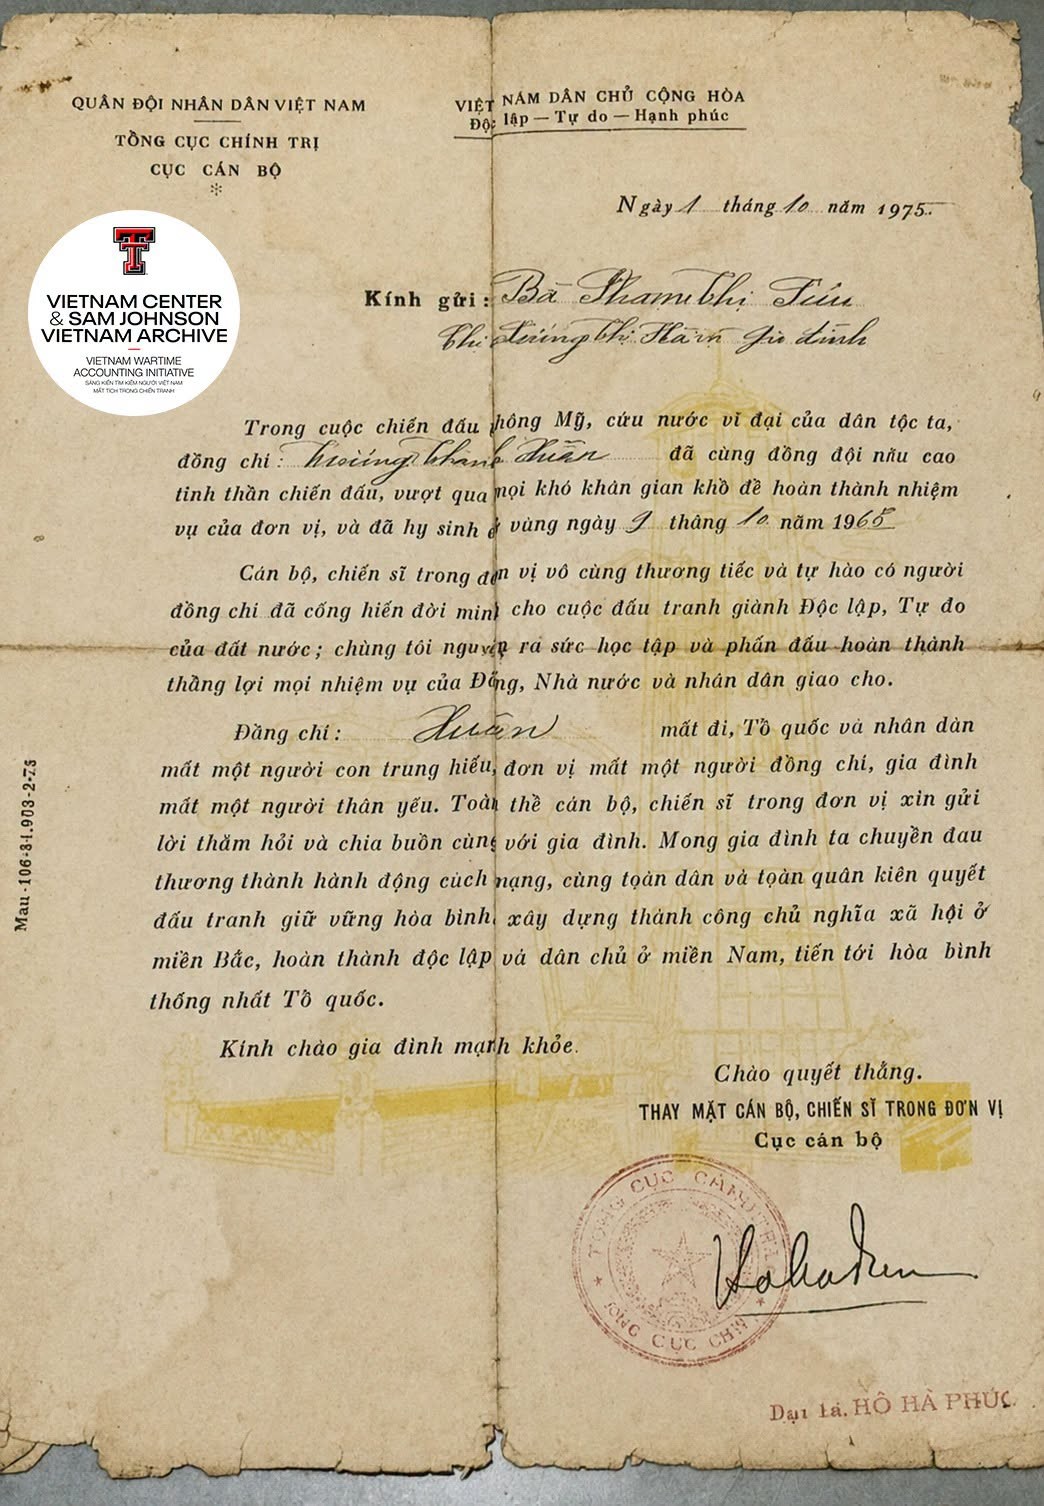 QUÂN ĐỘI NHÂN DÂN VIỆT NAM
TỔNG CỤC CHÍNH TRỊ
CỤC CÁN BỘ
VIỆT NAM DÂN CHỦ CỘNG HÒA
Độc lập — Tự do — Hạnh phúc
Ngày 1 tháng 10 năm 1975
VIETNAM CENTER
& SAM JOHNSON
VIETNAM ARCHIVE
VIETNAM WARTIME
ACCOUNTING INITIATIVE
SÁNG KIẾN TÌM KIẾM NGƯỜI VIỆT NAM
MẤT TÍCH TRONG CHIẾN TRANH
Kính gửi: Bà Phạm Thị
Thị Hàm gia đình
Trong cuộc chiến đấu chống Mỹ, cứu nước vĩ đại của dân tộc ta,
đồng chí: Xuân đã cùng đồng đội nêu cao
tinh thần chiến đấu, vượt qua mọi khó khăn gian khổ để hoàn thành nhiệm
vụ của đơn vị, và đã hy sinh vẻ vang ngày tháng 10 năm 1965
Cán bộ, chiến sĩ trong đơn vị vô cùng thương tiếc và tự hào có người
đồng chí đã cống hiến đời mình cho cuộc đấu tranh giành Độc lập, Tự do
của đất nước; chúng tôi nguyện ra sức học tập và phấn đấu hoàn thành
thắng lợi mọi nhiệm vụ của Đảng, Nhà nước và nhân dân giao cho.
Đồng chí: Xuân mất đi, Tổ quốc và nhân dân
mất một người con trung hiếu, đơn vị mất một người đồng chí, gia đình
mất một người thân yêu. Toàn thể cán bộ, chiến sĩ trong đơn vị xin gửi
lời thăm hỏi và chia buồn cùng với gia đình. Mong gia đình ta chuyển đau
thương thành hành động cách mạng, cùng toàn dân và toàn quân kiên quyết
đấu tranh giữ vững hòa bình, xây dựng thành công chủ nghĩa xã hội ở
miền Bắc, hoàn thành độc lập và dân chủ ở miền Nam, tiến tới hòa bình
thống nhất Tổ quốc.
Kính chào gia đình mạnh khỏe.
Chào quyết thắng.
THAY MẶT CÁN BỘ, CHIẾN SĨ TRONG ĐƠN VỊ
Cục cán bộ
TỔNG CỤC CHÍNH TRỊ
Đại tá. HỒ HÀ PHÚC